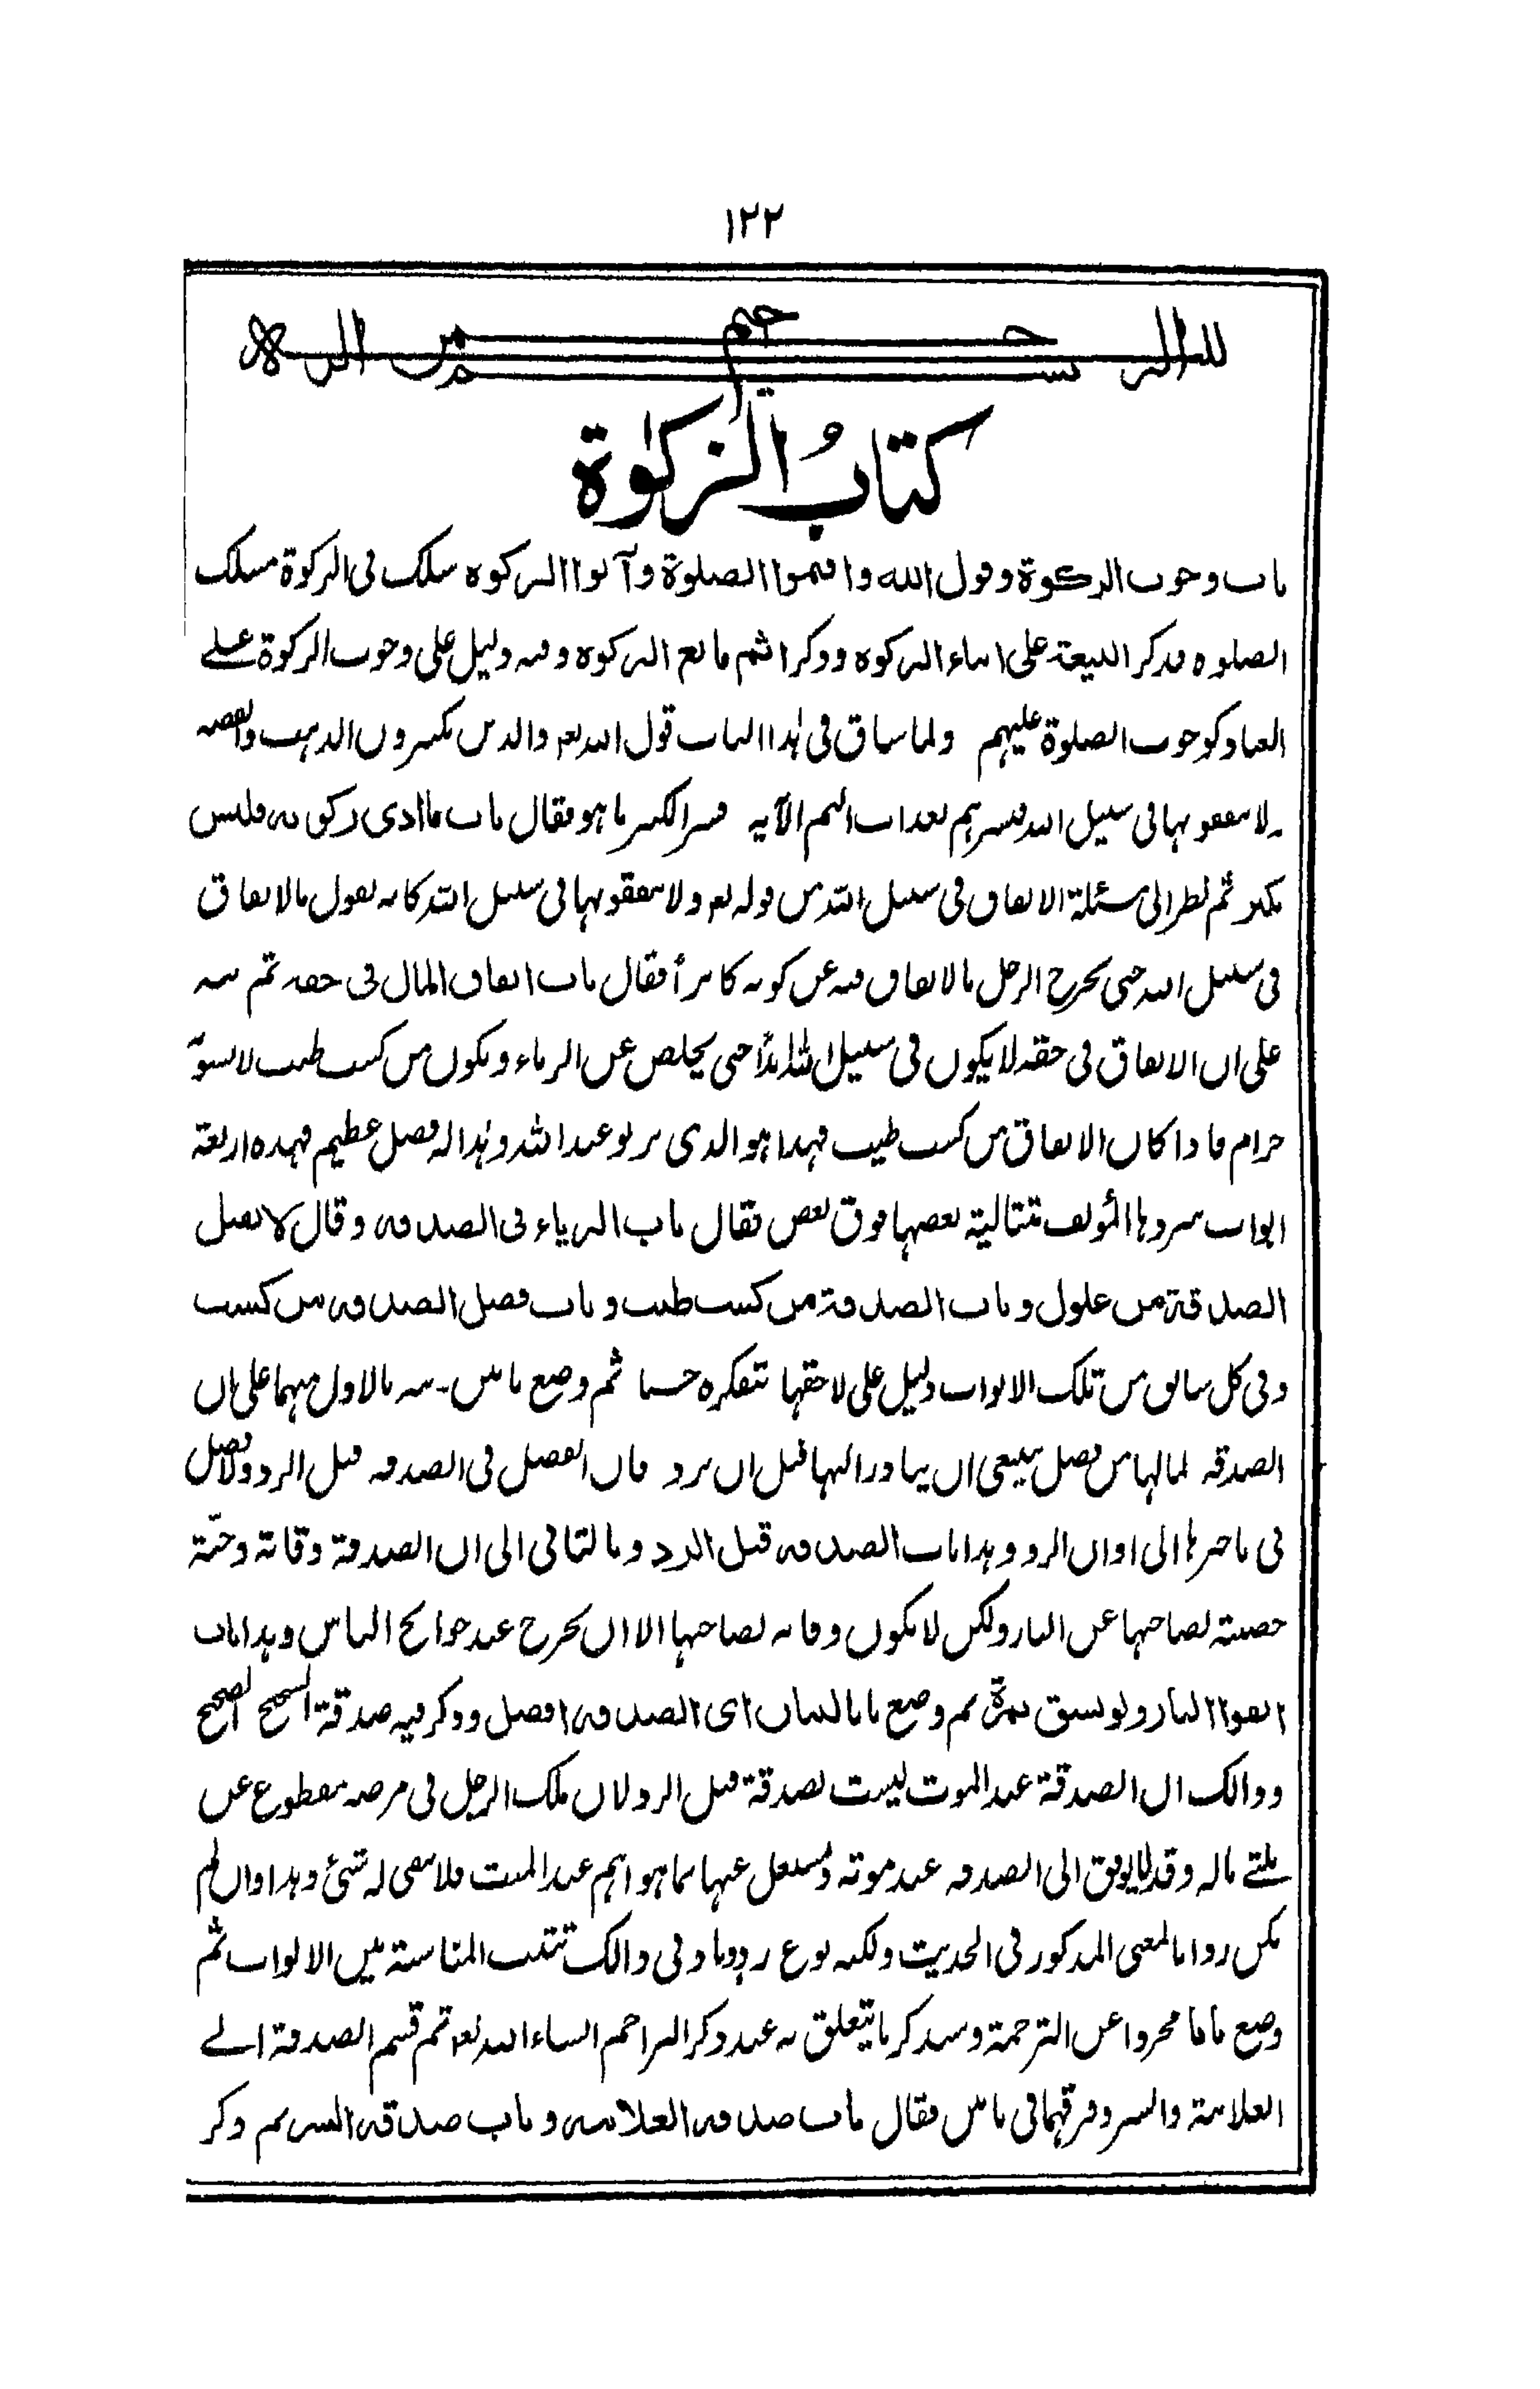 ١٢٢
بسم الله الرحمن الرحيم
كتابُ الزكوٰة
باب وجوب الزكوة وقول الله واقيموا الصلوة وآتوا الزكوه سلك فى الزكوة مسلك
الصلوه فذكر البيعة على ايتاء الزكوه وذكر اثم مانع الزكوه وفيه دليل على وجوب الزكوة على
العباد كوجوب الصلوة عليهم ولما ساق فى هذا الباب قول الله تعو والذين يكنزون الذهب والفضه
ولا ينفقونها فى سبيل الله فبشرهم بعذاب اليم الآيه فسر الكنز ما هو فقال باب ما ادى زكوته فليس
بكنز ثم نظر الى مسئلة الانفاق فى سبيل الله من قوله تعو ولا ينفقونها فى سبيل الله كانه يقول بالانفاق
فى سبيل الله حتى يخرج الرجل بالانفاق فيه عن كونه كانزاً فقال باب انفاق المال فى حقه ثم نبه
على ان الانفاق فى حقه لا يكون فى سبيل الله ابداً حتى يخلص عن الرياء ويكون من كسب طيب لا يسوبه
حرام فاذا كان الانفاق من كسب طيب فهذا هو الذى يربو عند الله وهذا له فضل عظيم فهذه اربعة
ابواب سردها المؤلف متتالية بعضها فوق بعض فقال باب الرياء فى الصدقه وقال لا يقبل
الصدقة من غلول وباب الصدقة من كسب طيب وباب فضل الصدقه من كسب
وفى كل سابق من تلك الابواب دليل على لاحقها تتفكره حسنا ثم وضع بابين۔ نبه بالاول منهما على ان
الصدقه لما لها من فضل ينبغى ان يبادر اليها قبل ان يرد فان الفضل فى الصدقه قبل الرد ولا فضل
فى تاخيرها الى اوان الرد وهذا باب الصدقه قبل الرد وبالثانى الى ان الصدقة وقاية وجنّة
حصينة لصاحبها عن النار ولكن لا يكون وقايه لصاحبها الا ان يخرج عند حوائج الناس وهذا باب
اتقوا النار ولو بشق تمرة ثم وضع بابا لبيان اى الصدقه افضل وذكر فيه صدقة الشحيح الصحيح
وذالك ان الصدقة عند الموت ليست بصدقة قبل الرد لان ملك الرجل فى مرضه مقطوع عن
ثلثى ماله وقد لا يوفق الى الصدقه عند موته ويشغل عنها بما هو اهم عند الميت فلا يبقى له شئ وهذا وان لم
يكن ردا بالمعنى المذكور فى الحديث ولكنه نوع رد وفى ذالك تثبت المناسبة بين الابواب ثم
وضع بابا مجردا عن الترجمة وسنذكر ما يتعلق به عند ذكر التراجم انشاء الله تعو ثم قسم الصدقة الى
العلانية والسر وفرقهما فى بابين فقال باب صدقه العلانيه وباب صدقه السر ثم ذكر